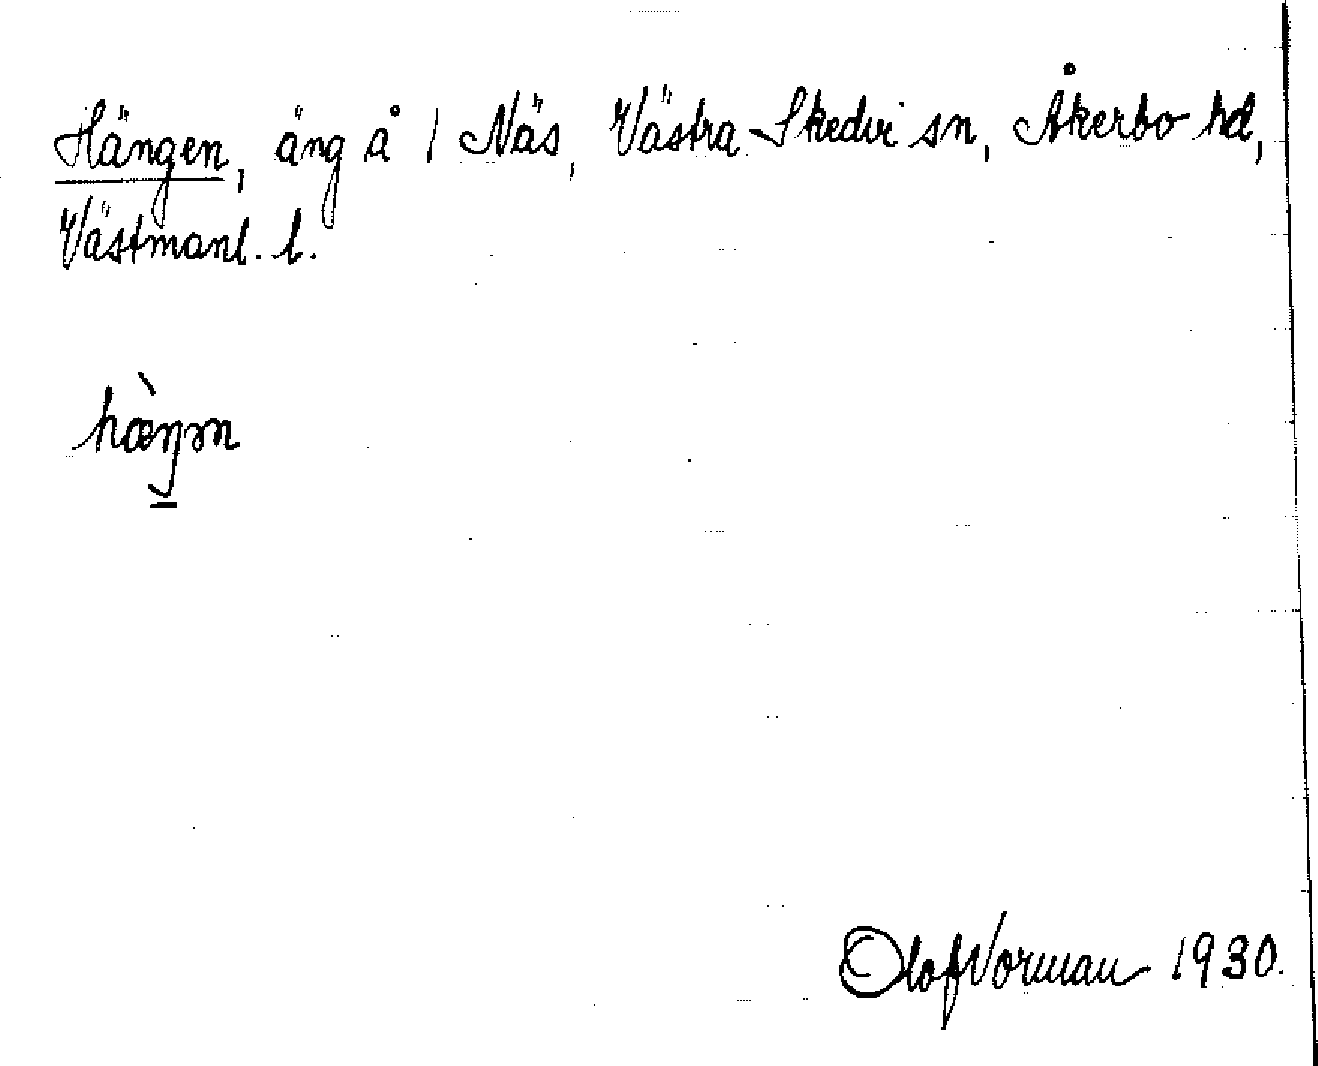 Hängen, äng å 1 Näs, Västra Skedvi sn, Åkerbo hd,
Västmanl. l.
hæ̀ŋən
Olof Norman 1930.